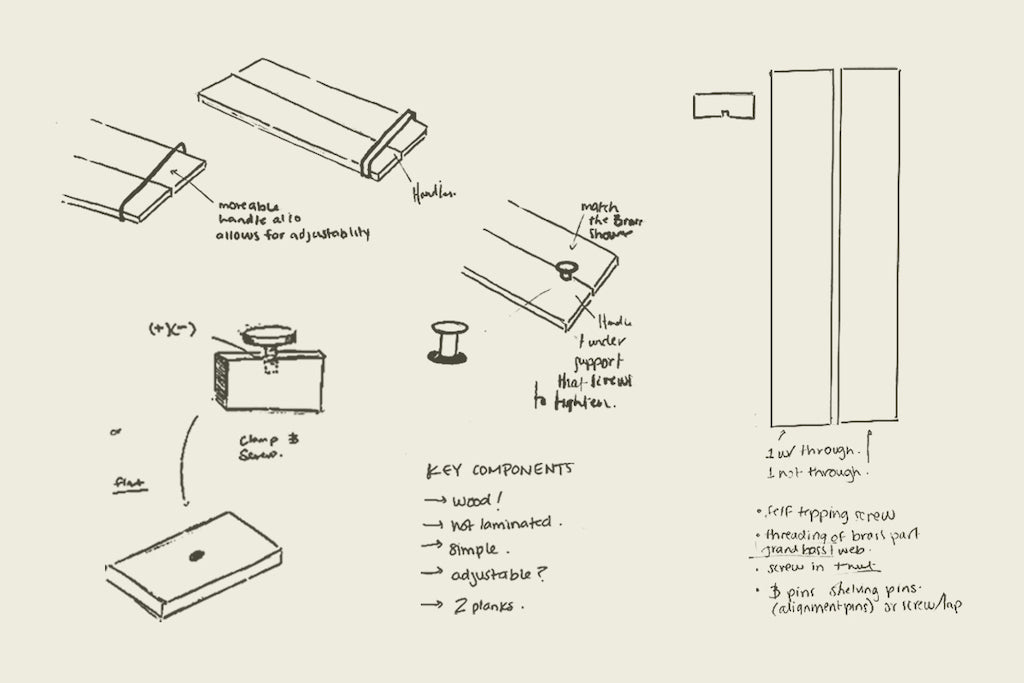 moveable
handle also
allows for adjustability
Handles.
match
the Brass
shower
Handle
& under
support
that screws
to tighten.
(+)(-)
or
flat
Clamp &
Screw.
KEY COMPONENTS
→ wood!
→ not laminated.
→ simple.
→ adjustable?
→ 2 planks.
1 w/ through.
1 not through.
• self tapping screw
• threading of brass part
web.
• screw in
• pins shelving pins.
(alignment pins) or screw/tap